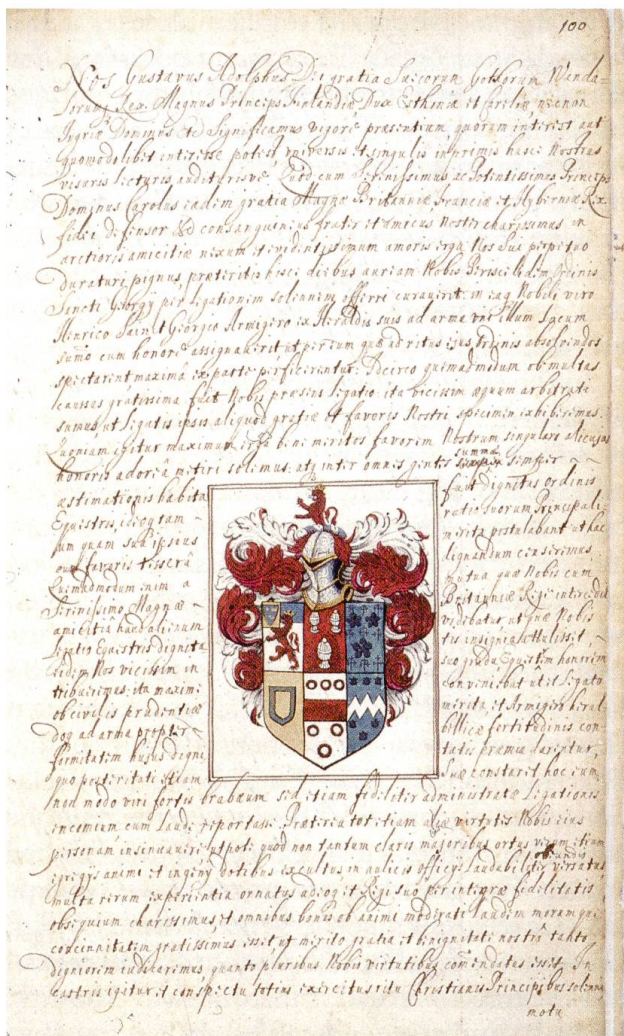 100
Nos Gustavus Adolphus Dei gratia Suecorum Gothorum Vanda-
lorum Rex Magnus Princeps Finlandiæ Dux Esthiniæ et Careliæ necnon
Ingriæ Dominus etc Significamus vigore præsentium quorum interest aut
quomodolibet interesse potest universis et singulis inprimis hasce Nostras
visuris lecturis audituris've Quod cum Serenissimus ac Potentissimus Princeps
Dominus Carolus eadem gratia Magnæ Britanniæ Franciæ et Hyberniæ Rex
fidei defensor &c consanguineus frater et amicus Noster charissimus in
arctioris amicitiæ nexum et evidentissimum amoris erga Nos sua perpetuo
durature pignus, præteritis hisce diebus auream Nobis Periscelidem Ordinis
Sancti Georgy per legationem solennem offerre curaverit in eaq Nobili viro
Henrico Sainct Georgeo Armigero ex Heraldis suis ad arma illum locum
summo cum honore assignaverit ut per eum quæ id ritus ejus ordinis absolvendos
spectarent maxima ex parte perficerentur: Idcirco quemadmodum ob multas
caussas gratissima fuit Nobis præsens legatio: ita vicissim æquum arbitrati
sumus, ut legatis ipsis aliquod gratiæ et favoris Nostri specimen exhiberemus.
Quoniam igitur maximum erga bene meritos favorem Nostrum singulare alicujus
honoris adorea metiri solemus. atq inter omnes gentes summæ semper
æstimationis habita fuit dignitas ordinis
Equestris, ideoq tam ratio suorum Principali
um quam sua ipsius merita postulabant ut hac
favoris tessera dignandum censerimus.
Quemadmodum enim a mutua quæ Nobis cum
Serenissimo Magnæ Britanniæ Rege intercedit
amicitia haud alienum videbatur, ut quæ Nobis
legatio Equestris dignita tis insignia attulisset,
eidem Nos vicissim in suo gradu Equestrem honorem
tribueremus: ita maxime conveniebat ut et legato
ob civilis prudentiæ merita, et Armigero heral
do ad arma propter bellicæ fortitudinis con
firmitatem hujus digni tatis præmia darentur,
quo posteritati etiam suæ constaret hoc eum
non modo viri fortis brabæum sed etiam fideliter administratæ Legationis
encomium cum laude reportasse. Præterea tot etiam aliæ virtutis Nobis ejus
personam insinuavere, utpote quod non tantum claris majoribus ortus verum etiam
egregys animi et ingeny dotibus excultus, in aulicis officys obeundis laudabiliter versatus
multa rerum experientia ornatus adeoq et Regi suo per integræ fidelitatis
obsequium charissimus et omnibus bonis ob animi moderati laudem morumque
concinnitatem gratissimus esset ut merito gratia et benignitate nostra tanto
digniorem iudicaremus, quanto pluribus Nobis virtutibus commendatus esset. In
castris igitur et conspectu totius exercitus ritu Christianis Principibus solenni
motu